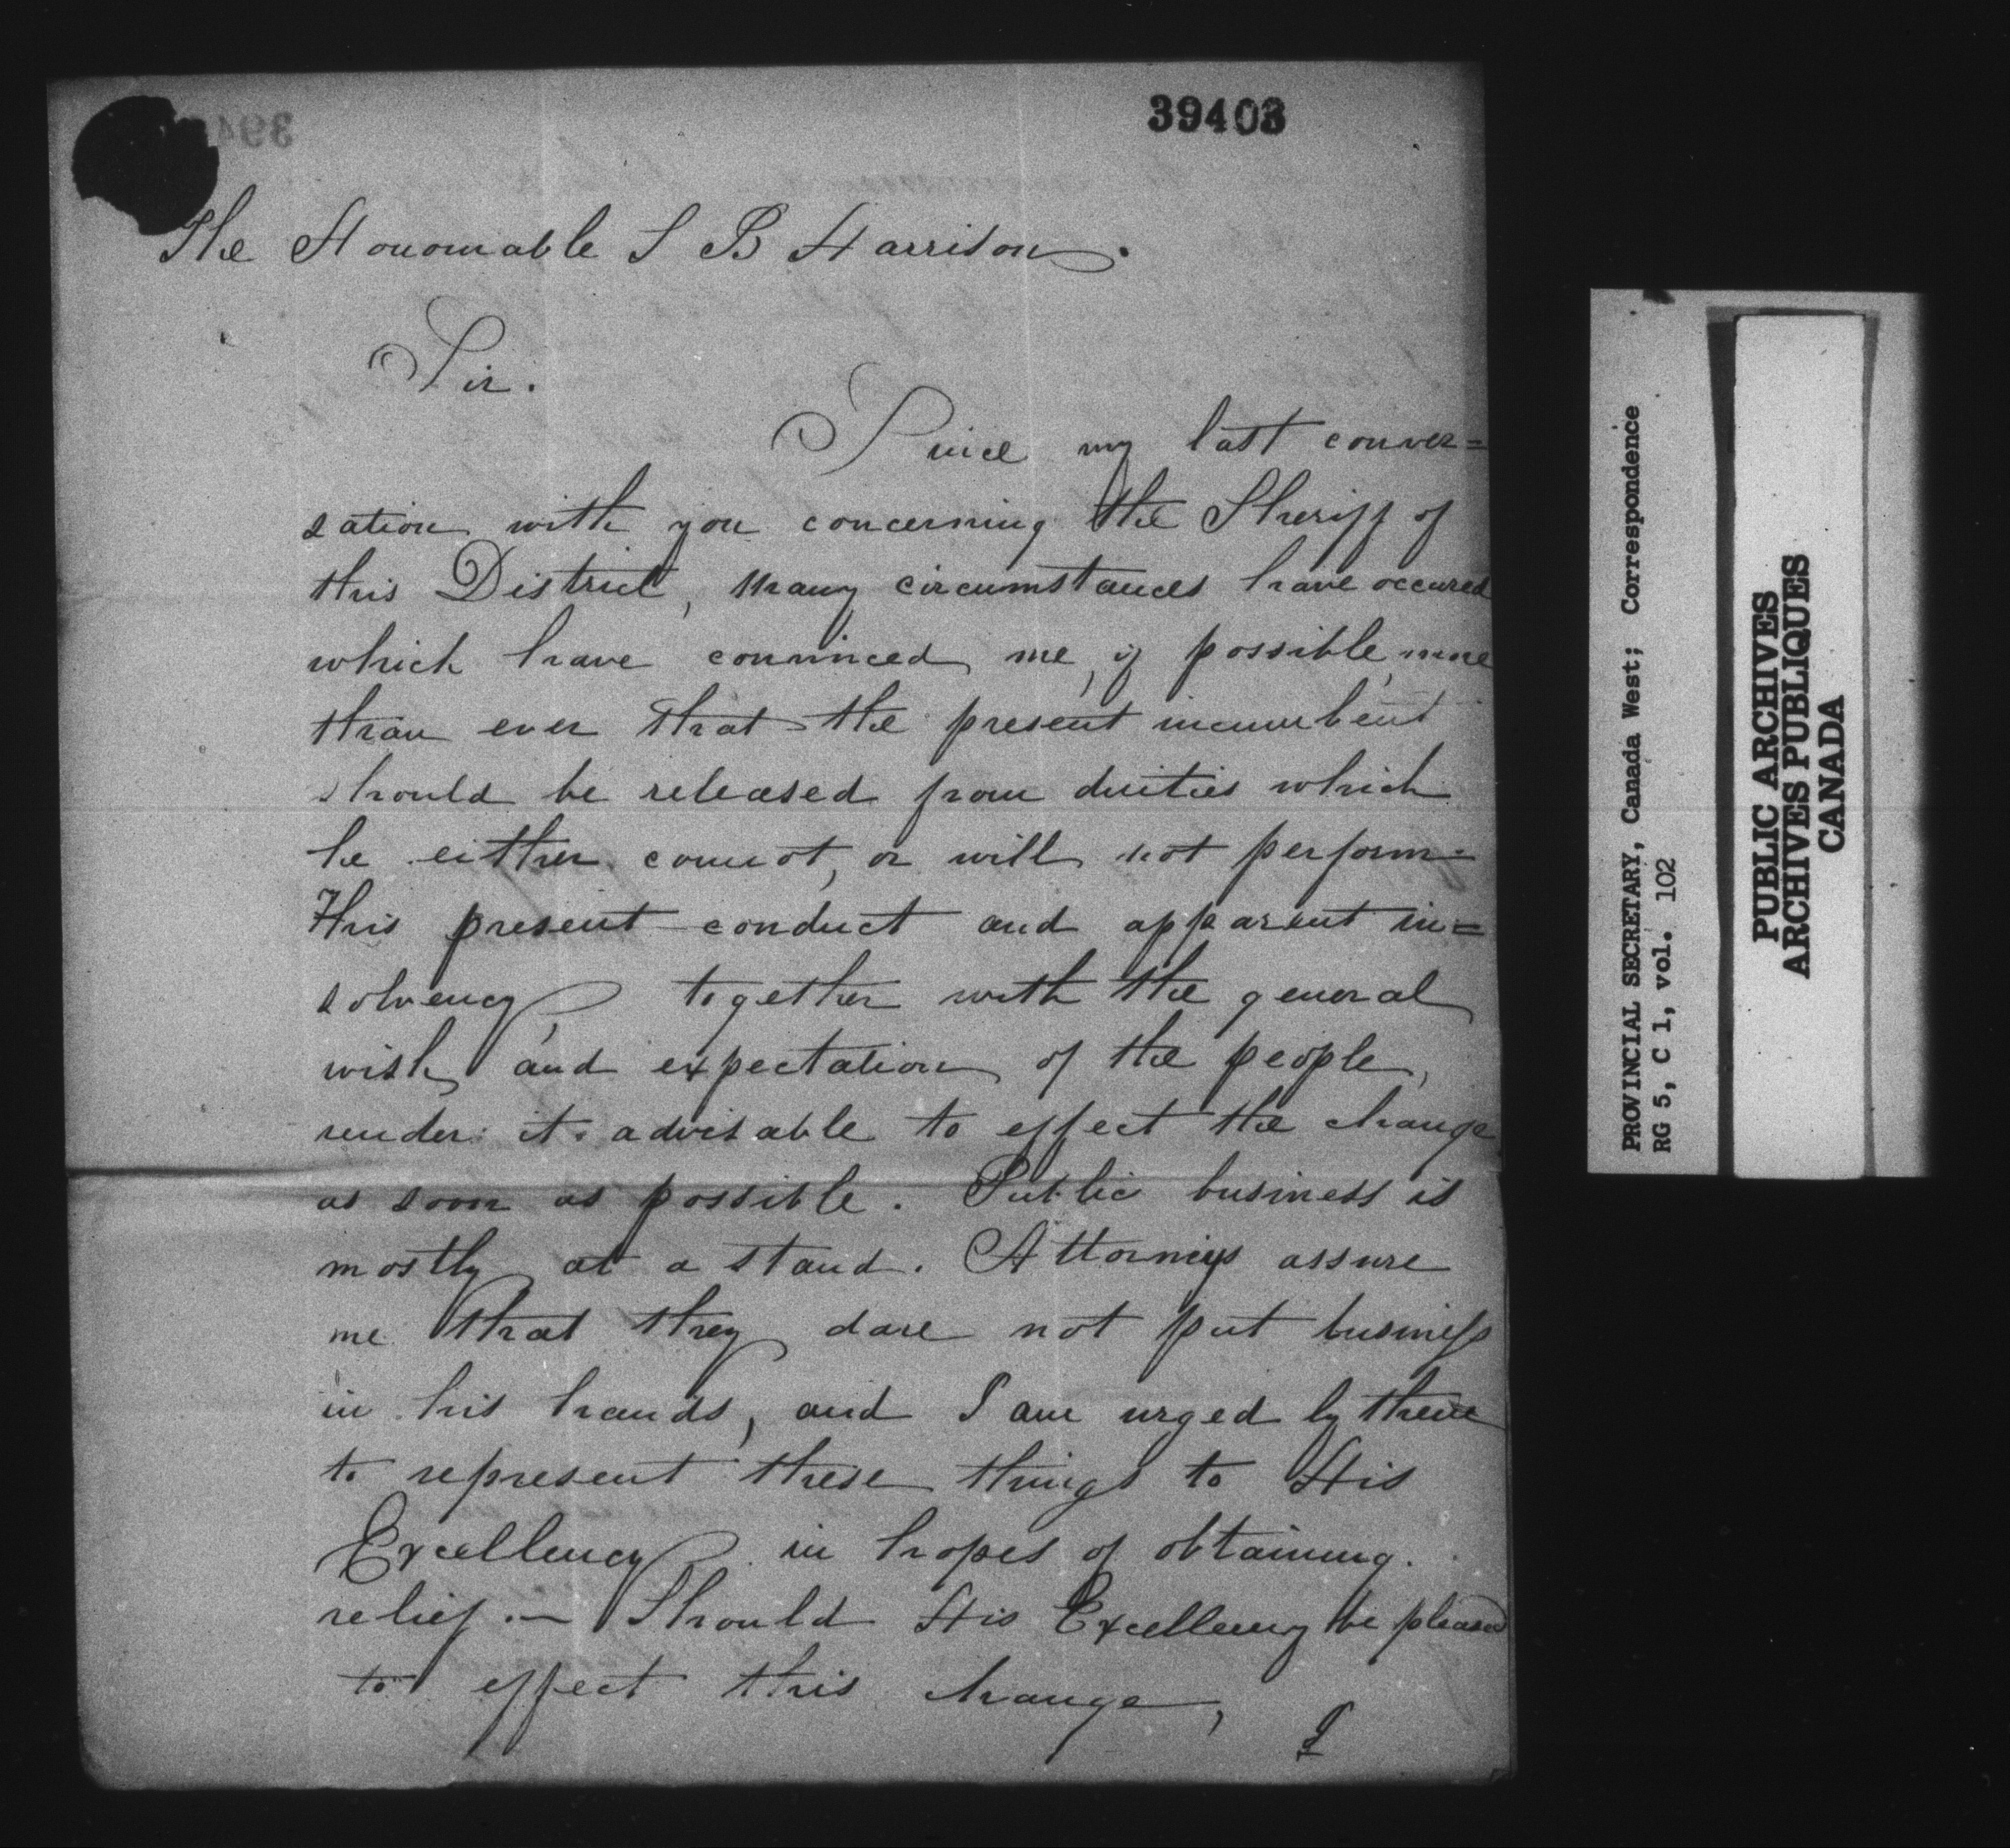 39403
The Honourable S B Harrison.
Sir.
Since my last conver=
sation with you concerning the Sheriff of
this District, many circumstances have occured
which have convinced me, if possible, more
than ever that the present incumbent
should be released from duties which
he either cannot, or will not perform-
His present conduct and apparent in=
solvency, together with the general
wish and expectation of the people,
render it advisable to effect the change
as soon as possible. Public business is
mostly at a stand. Attorneys assure
me that they dare not put business
in his hands, and I am urged by them
to represent these things to His
Excellency in hopes of obtaining
relief.— Should His Excellency be pleased
to effect this change,
I
PROVINCIAL SECRETARY, Canada West; Correspondence
RG 5, C 1, vol. 102
PUBLIC ARCHIVES
ARCHIVES PUBLIQUES
CANADA